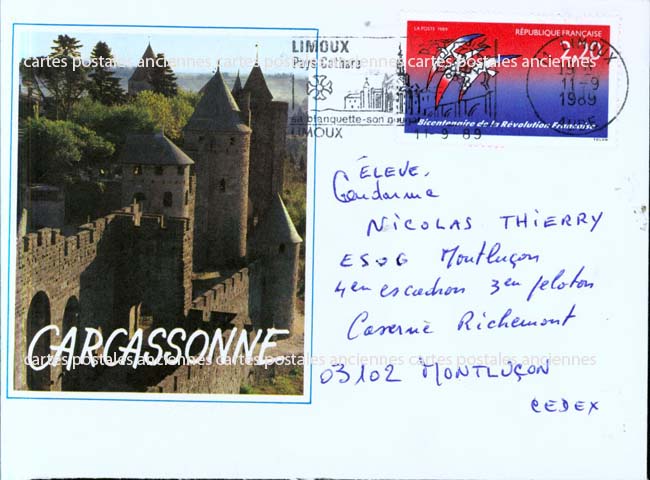 LA POSTE 1989
RÉPUBLIQUE FRANÇAISE
2,20
Bicentenaire de la Révolution Française
LIMOUX
Pays Cathare
sa blanquette-son nougat
LIMOUX
11-9 89
LIMOUX
11-9
1989
AUDE
cartes postales anciennes cartes postales anciennes cartes postales anciennes
ÉLEVE.
Gendarme
NICOLAS THIERRY
ESOG Montluçon
4em escadron 3em peloton
Caserne Richemont
03102 MONTLUÇON
CEDEX
CARCASSONNE
cartes postales anciennes cartes postales anciennes cartes postales anciennes